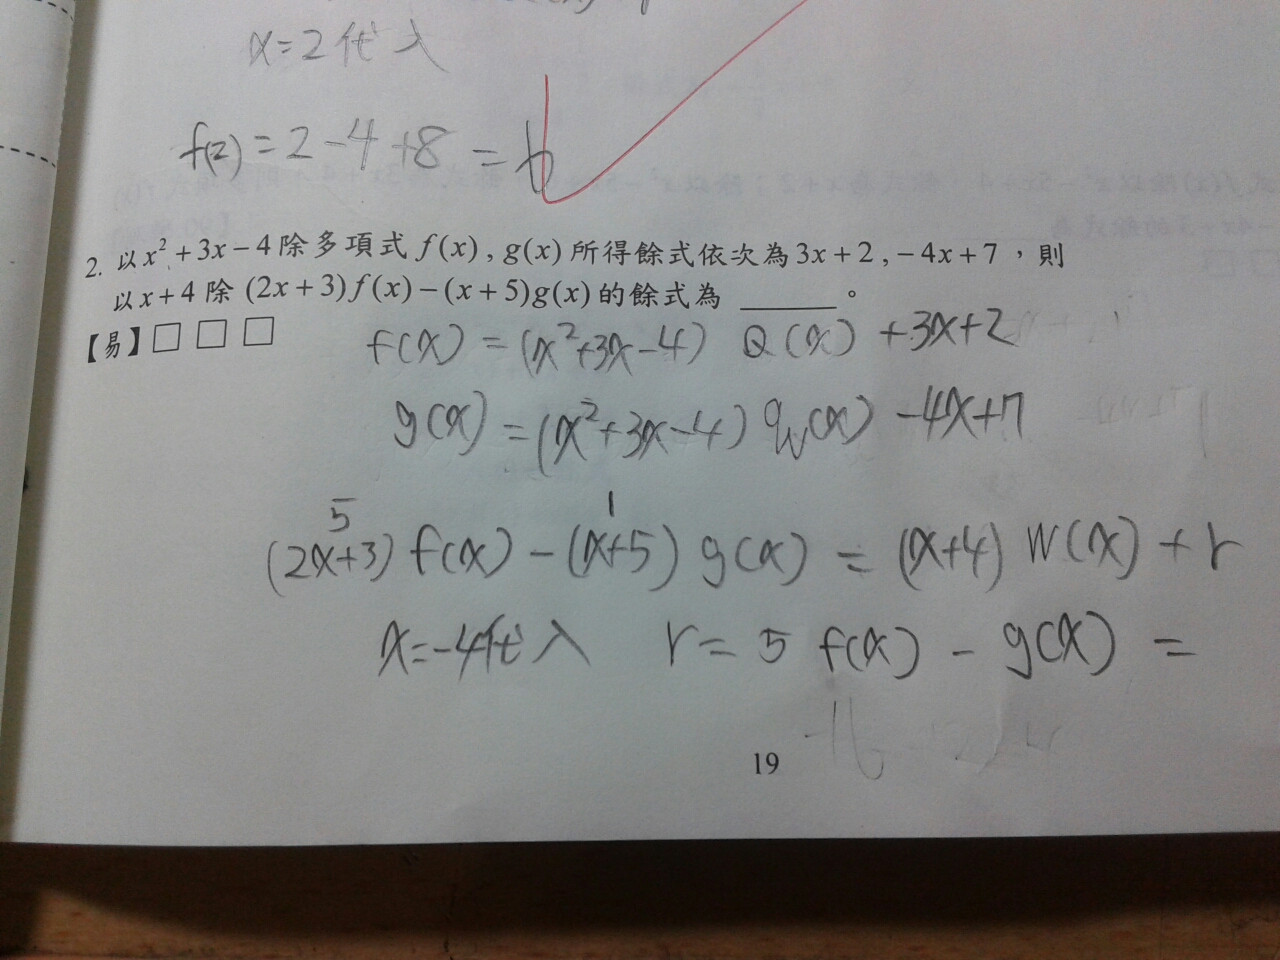 x=2代入
f(2) = 2-4+8 = 6
2. 以x²+3x-4除多項式 f(x), g(x)所得餘式依次為3x+2, -4x+7，則
以x+4除 (2x+3)f(x)-(x+5)g(x)的餘式為 ______。
【易】□ □ □
f(x) = (x²+3x-4) Q(x) +3x+2
g(x) = (x²+3x-4) q(x) -4x+7
5 1
(2x+3) f(x) - (x+5) g(x) = (x+4) W(x) + r
x=-4代入 r = 5 f(x) - g(x) =
19